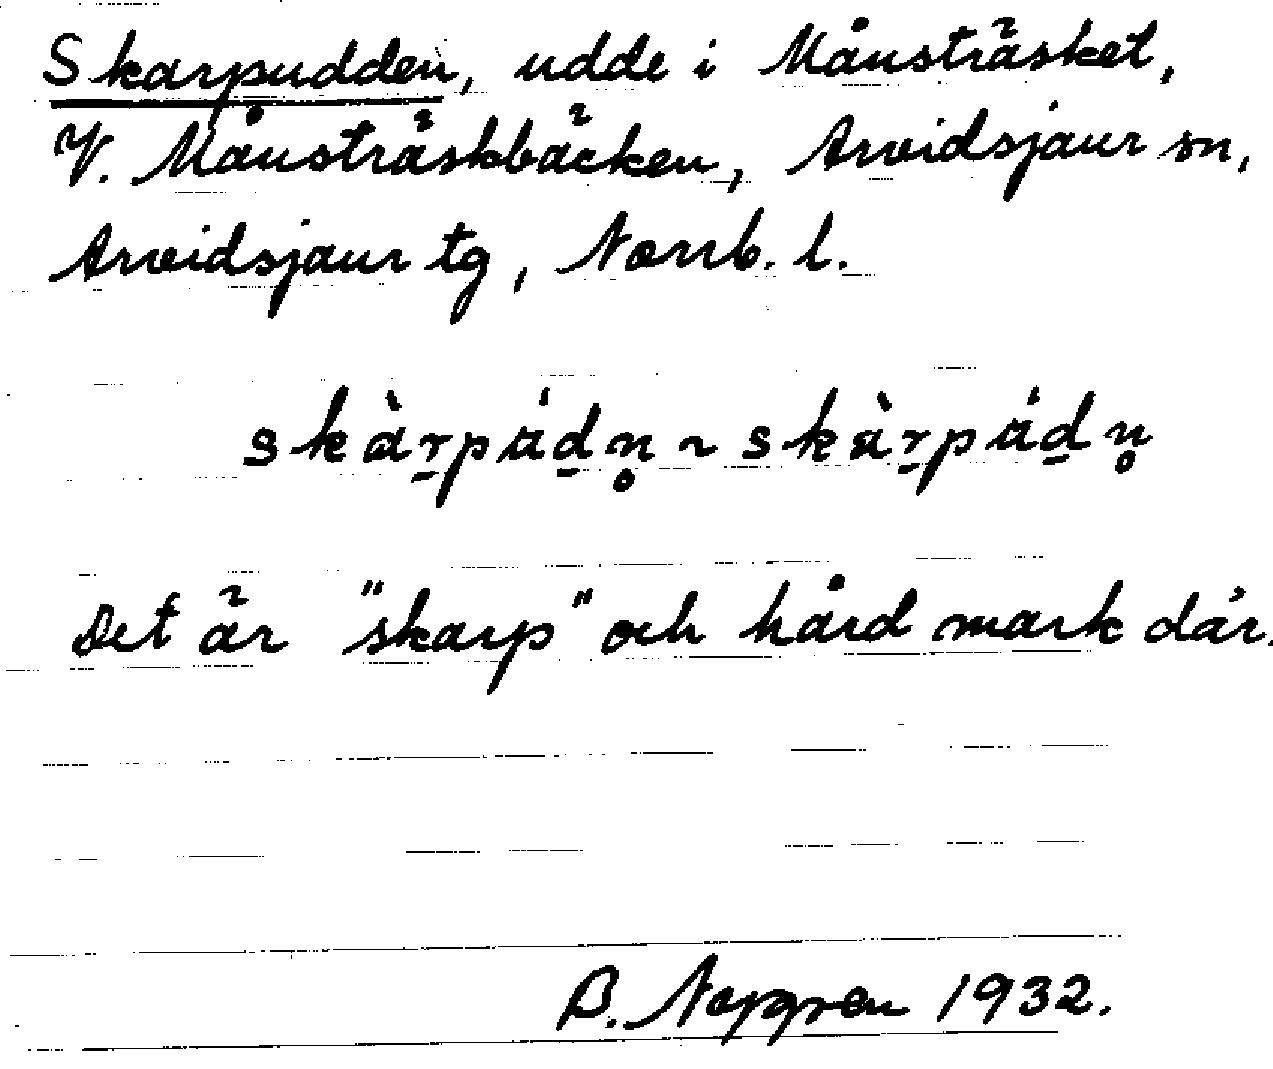 Skarpudden, udde i Månsträsket,
V. Månsträskbäcken, Arvidsjaur sn,
Arvidsjaur tg, Norrb. l.
skàr̠pád̠n̥ ~ skàr̠pád̠n̥
Det är "skarp" och hård mark där.
B. 1932.